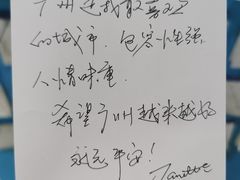 广州是我最喜欢
的城市，包容性强
人情味重。
希望广州越来越好
永远平安！